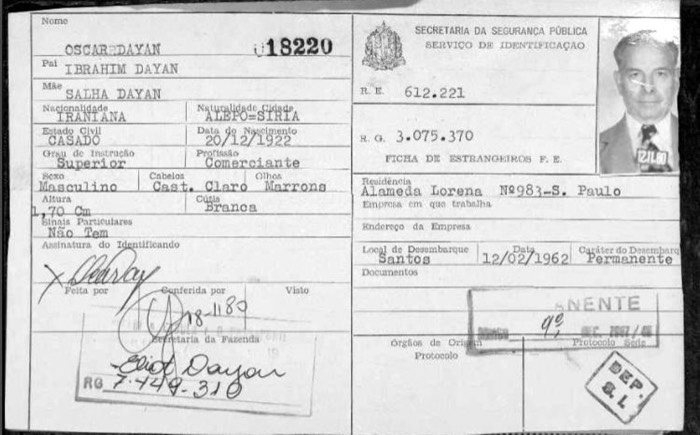 Nome
OSCAR DAYAN
18220
Pai
IBRAHIM DAYAN
Mãe
SALHA DAYAN
Nacionalidade Naturalidade Cidade
IRANIANA ALEPO=SIRIA
Estado Civil Data do Nascimento
CASADO 20/12/1922
Grau de Instrução Profissão
Superior Comerciante
Sexo Cabelos Olhos
Masculino Cast. Claro Marrons
Altura Cútis
1,70 Cm Branca
Sinais Particulares
Não Tem
Assinatura do Identificando
Feita por Conferida por Visto
18-11-80
Secretaria da Fazenda
Eliot Dayan
RG 7.449-310
SECRETARIA DA SEGURANÇA PÚBLICA
SERVIÇO DE IDENTIFICAÇÃO
R. E. 612.221
R. G. 3.075.370
FICHA DE ESTRANGEIROS F. E.
Residência
Alameda Lorena Nº983-S. Paulo
Empresa em que trabalha
Endereço da Empresa
Local de Desembarque Data Caráter do Desembarq
Santos 12/02/1962 Permanente
Documentos
ANENTE
Órgãos de Origem Protocolo Série
Protocolo
DEP.
S. I.